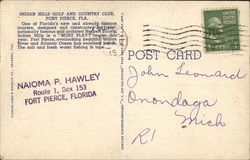 INDIAN HILLS GOLF AND COUNTRY CLUB,
FORT PIERCE, FLA.
One of Florida's new and already famous
courses, designed and constructed by the
nationally famous golf architect Herbert
Indian Hills is a "MUST PLAY" course this
year. Fort Pierce, overlooking beautiful Indian
River and Atlantic Ocean has excellent hotels.
The salt and fresh water fishing is tops.
NAIOMA P. HAWLEY
Route 1, Box 153
FORT PIERCE, FLORIDA
POST CARD
John Leonard
Onondaga
Mich
R1